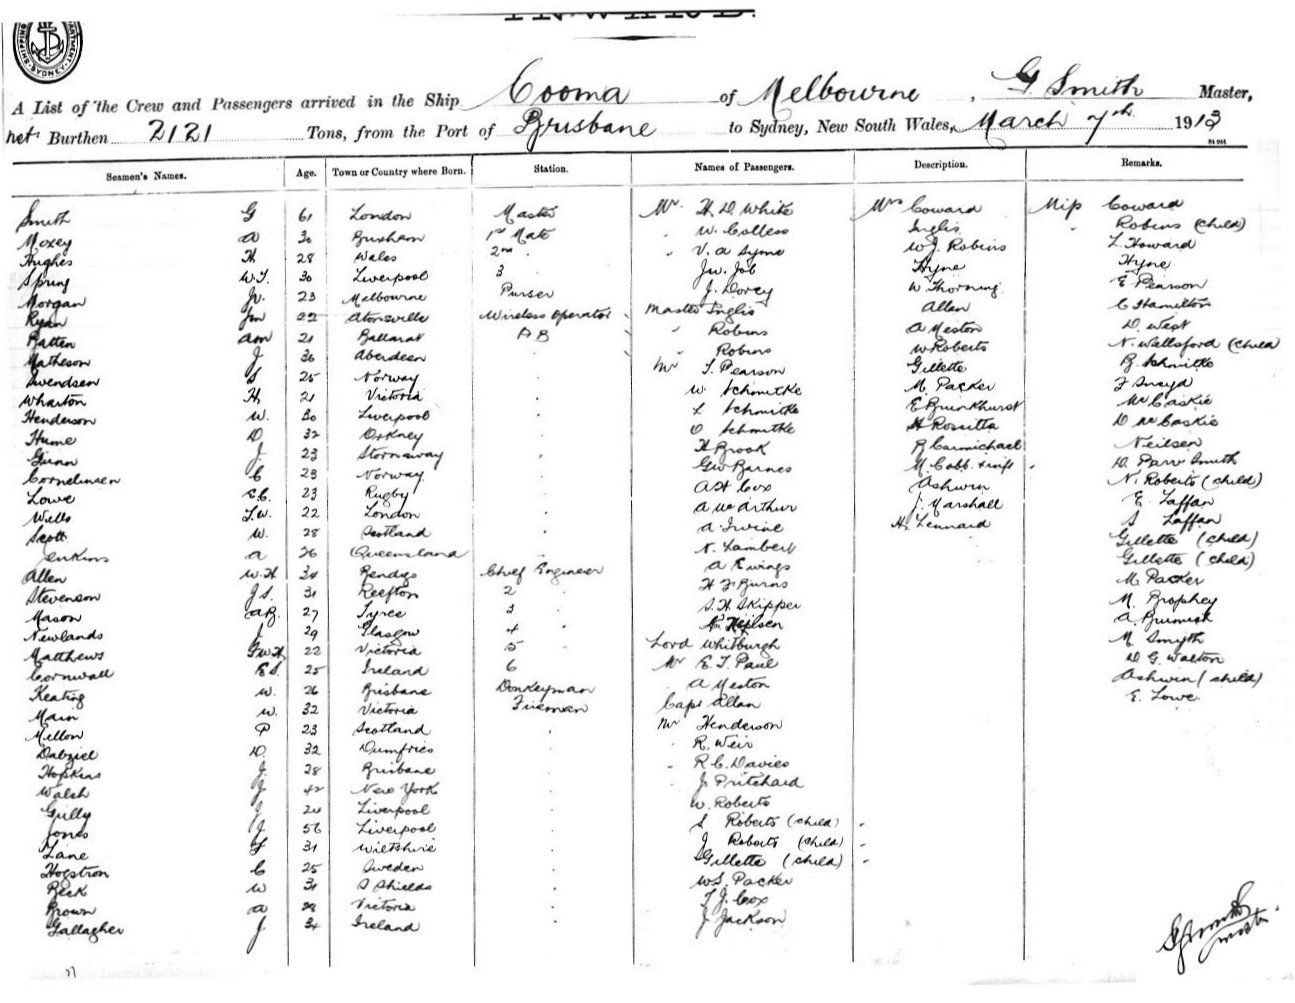 INWARD.
SHIPPING DEPARTMENT. SYDNEY
A List of the Crew and Passengers arrived in the Ship Cooma of Melbourne, G Smith Master,
net Burthen 2121 Tons, from the Port of Brisbane to Sydney, New South Wales, March 7th 1913
Seamen's Names. Age. Town or Country where Born. Station. Names of Passengers. Description. Remarks.
Smith G 61 London Master Mr. H. D White Mrs Coward Miss Coward
Moxey A 30 Brixham 1st Mate " W. Colless Inglis " Robins (child)
Hughes H 28 Wales 2nd " " V. A Syme W J. Robins L Howard
Spring W.T. 30 Liverpool 3 Jw. Job Hyne Hyne
Morgan Jr. 23 Melbourne Purser J. Dorey W Thorning E Pearson
Ryan Jm 22 Wireless Operator Master Inglis Allen C Hamilton
Batten am 21 Ballarat A B " Robins A Meston D. West
Matheson J 36 Aberdeen " Robins W Roberts N. Wallsford (child)
Swendsen S 25 Norway Mr T. Pearson Gillette B. Schmitke
Wharton H. 21 Victoria W Schmitke M. Packer F Sneyd
Henderson W. 30 Liverpool L Schmitke E Brinkhurst Mc Caskie
Hume D. 32 Orkney O Schmitke H Rosetta D Mc Caskie
Gunn J 23 Stornaway H Brook R Carmichael Neilsen
Cornelinsen C 23 Norway Geo Barnes M. Cobb D. Parr Smith
Lowe E.C. 23 Rugby A H Cox Ashwin N. Roberts (child)
Wells F.W. 22 London A McArthur J. Marshall E. Laffan
Scott W. 28 Scotland A Irvine H. Lennard S Laffan
Jenkins A 26 Queensland N. Lambert Gillette (child)
Allen W.H 34 Bendigo Chief Engineer A Ewings Gillette (child)
Stevenson J.S. 31 Reefton 2 " H F Burns M Packer
Mason A.B. 27 Tyree 3 " S. H. Skipper M. Brophey
Newlands J 29 Glasgow 4 " Neilsen A.
Matthews F.W.H 22 Victoria 5 Lord Whitburgh M Smyth
Cornwall E.S. 25 Ireland 6 Mr E. T. Paul D. G. Walton
Keating W. 26 Brisbane Donkeyman A Meston Ashwin (child)
Main W. 32 Victoria Fireman Capt Allan E. Lowe
Mellon P 23 Scotland Mr Henderson
Dalziel D. 32 Dumfries " R. Weir
Hopkins J. 28 Brisbane " R. C. Davies
Walsh J 42 New York J. Pritchard
Gilly J 24 Liverpool W. Roberts
Jones J 56 Liverpool S Roberts (child)
Lane F 31 Wiltshire J Roberts (child)
Hogstron C 25 Sweden Gillette (child)
Beck W 31 S Shields W.S. Packer
Brown A 28 Victoria T. J. Cox
Gallagher J 34 Ireland J Jackson
G Smith
Master